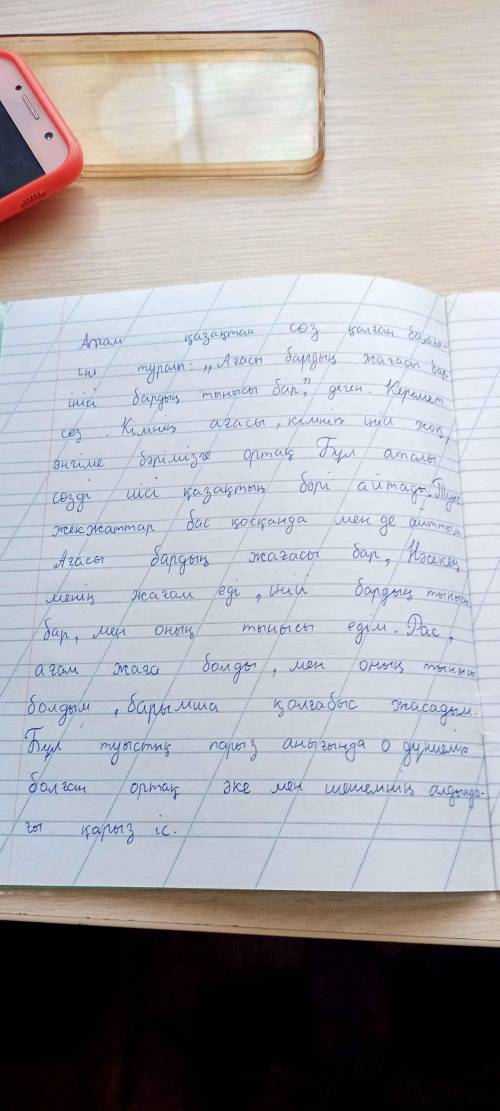 Атам қазақтан сөз қалған ба, аға-
іні туралы: „Ағасы бардың жағасы бар,
інісі бардың тынысы бар”, деген. Керемет
сөз. Кімнің ағасы, кімнің інісі жоқ,
әнгіме бәрімізге ортақ Бұл аталы
сөзді иісі қазақтың бәрі айтады.
жекжаттар бас қосқанда мен де айттым
Ағасы бардың жағасы бар,
менің жағам еді, інісі бардың тынысы
бар, мен оның тынысы едім. Рас,
ағам жаға болды, мен оның тынысы
болдым, барымша қолғабыс жасадым.
Бұл туыстық парыз анығында о дүниелік
болған ортақ әке мен шешемнің алдында-
ғы қарыз іс.